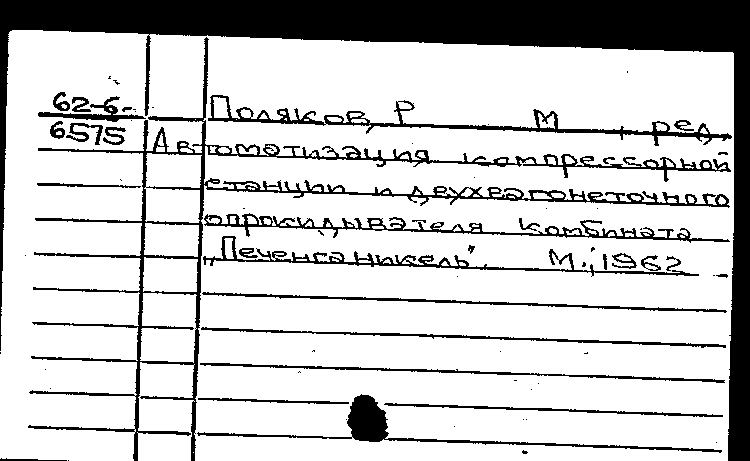 62-6. Поляков, Р М , ред.
6575 Автоматизация компрессорной
станции и двухвагонеточного
опрокидывателя комбината
„Печенганикель". М., 1962